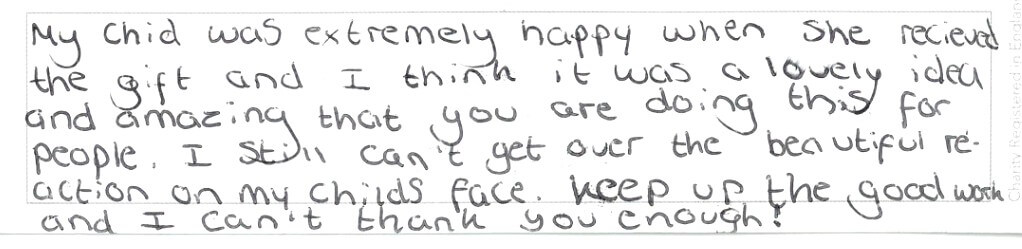 My Chid was extremely happy when She recieved
the gift and I think it was a lovely idea
and amazing that you are doing this for
people. I Still can't get over the beautiful re-
action on my childs face. Keep up the good work
and I can't thank you enough!
Charity Registered in England